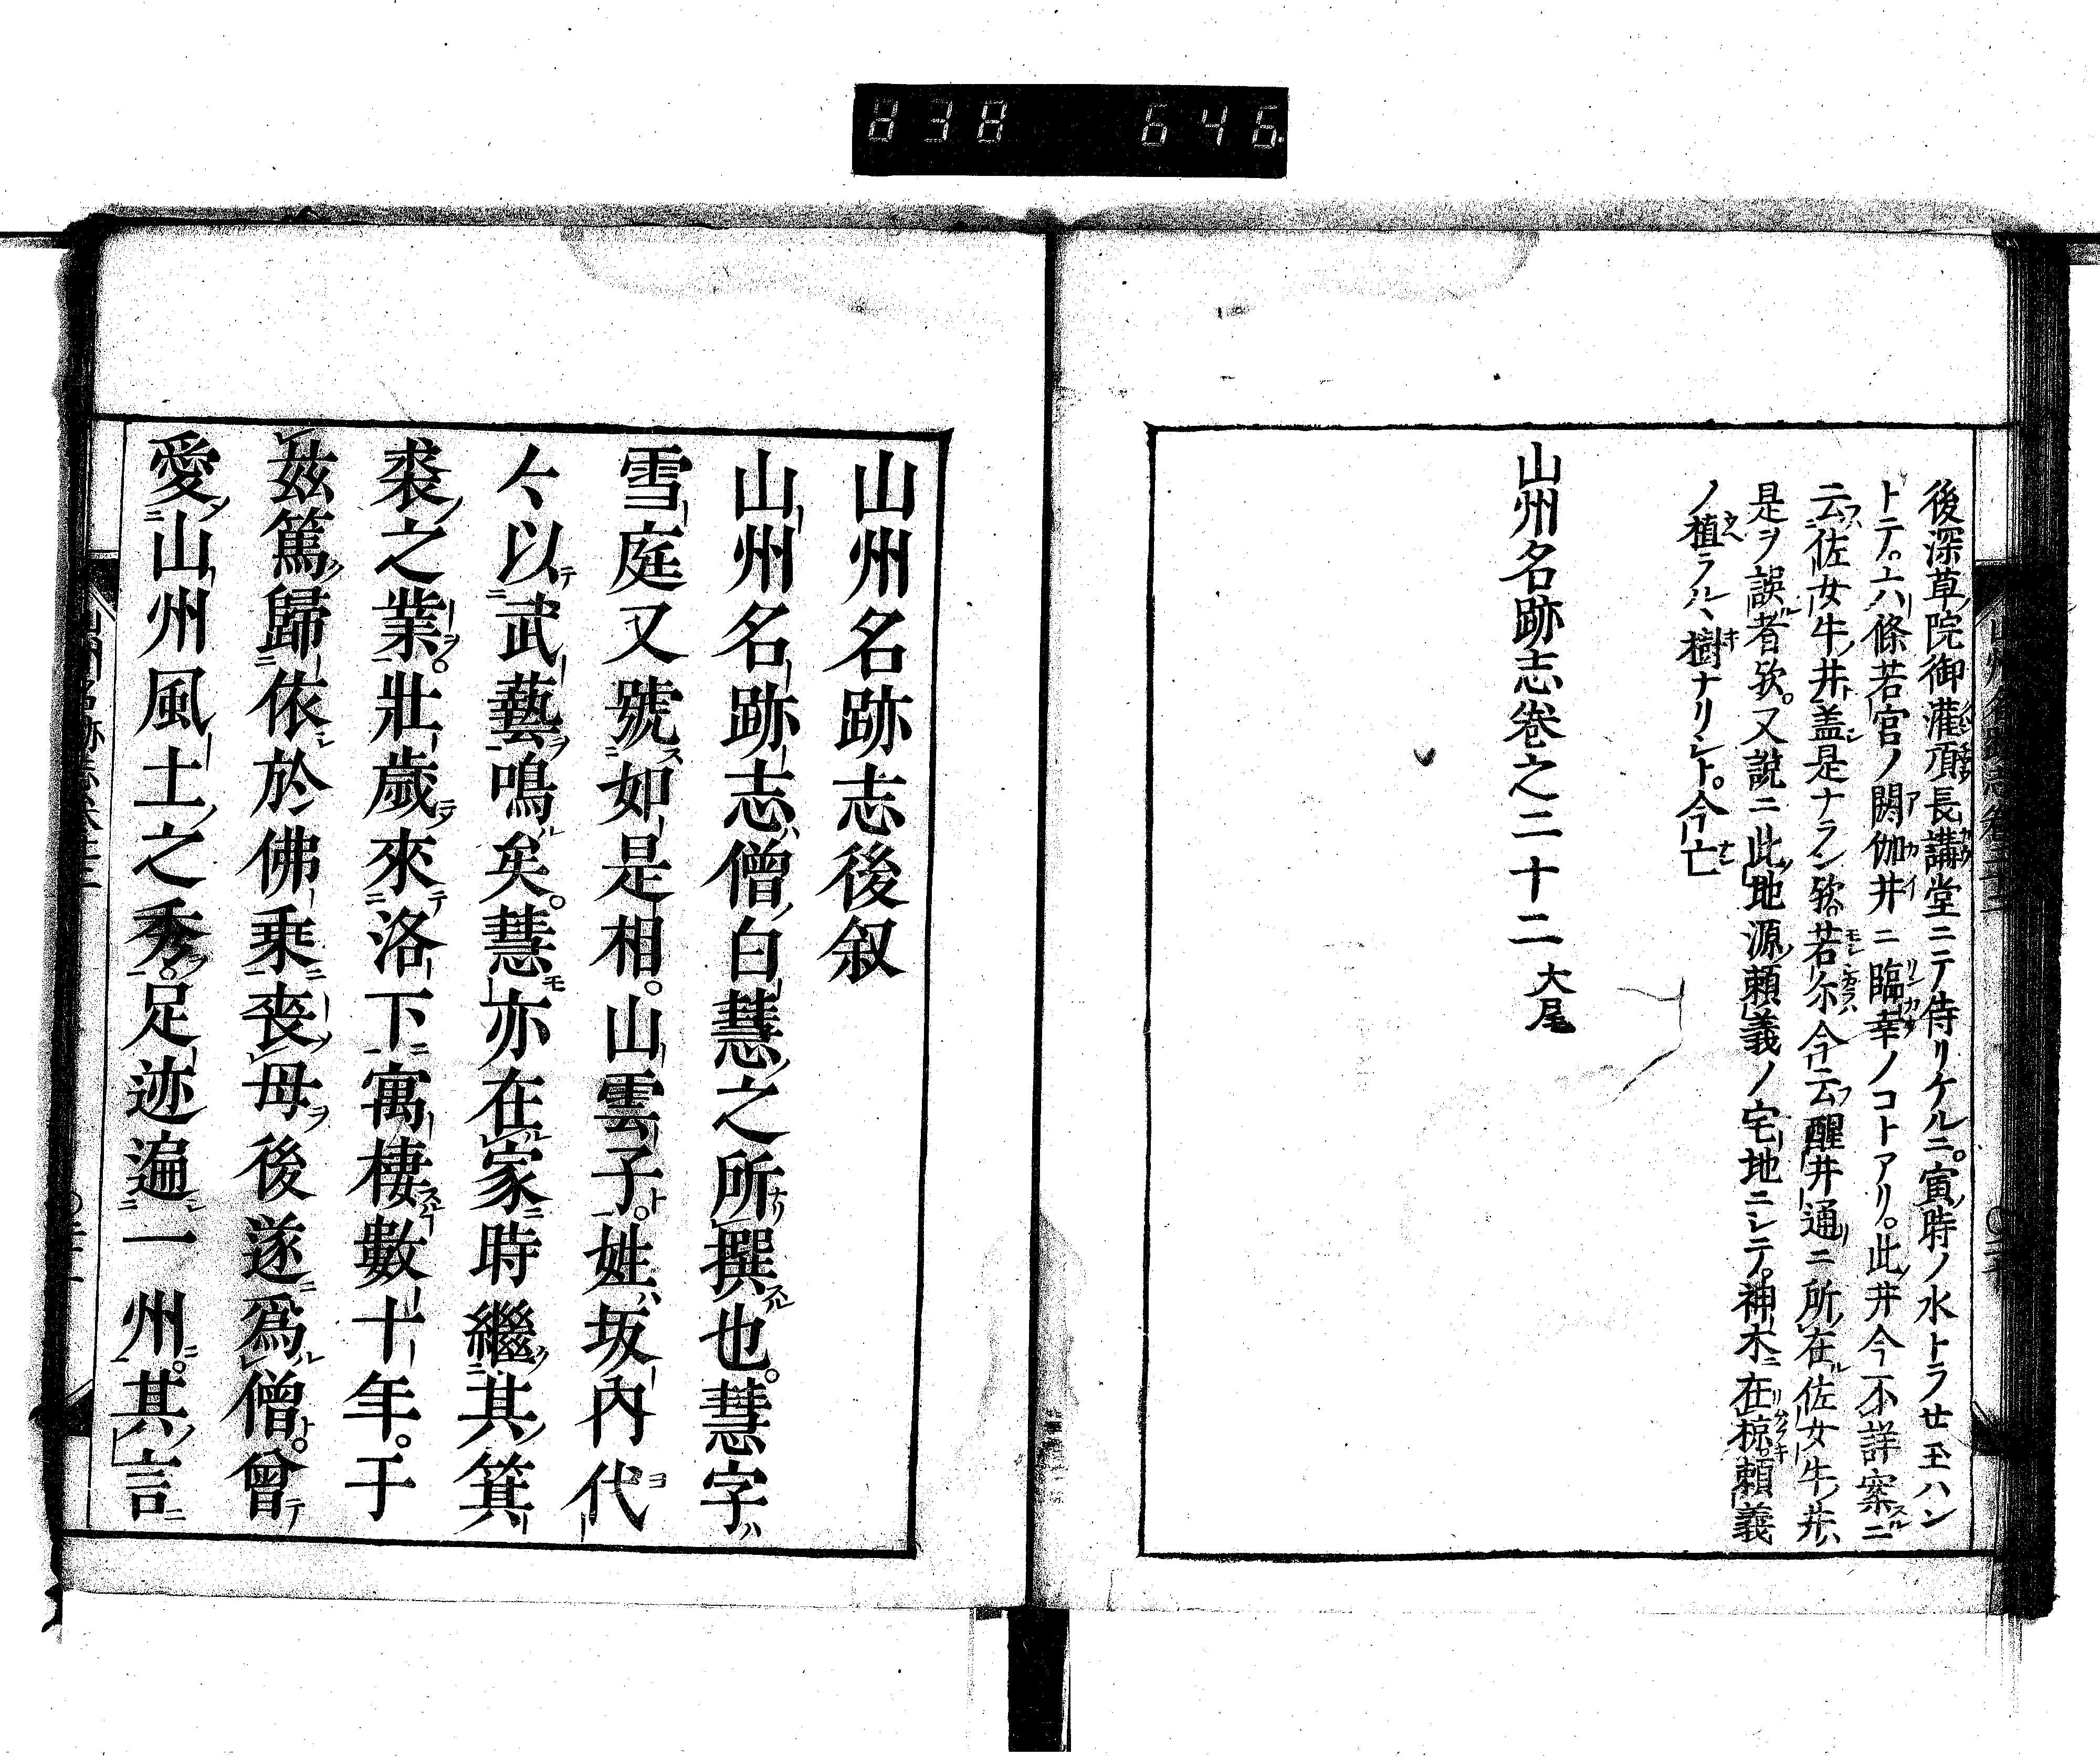 838 646
後深草院御灌頂長講堂ニテ侍リケルニ。寅時ノ水トラせ玉ハン
トテ。六條若宮ノ閼伽井ニ臨幸ノコトアリ。此井今不詳案ニ
云佐女牛井盖是ナラン歟。若尓今云醒井通ニ所在佐女牛井
是ヲ誤者歟。又説ニ此地源頼義ノ宅地ニシテ。神木ニ在椋。頼義
ノ植ラルヽ樹ナリシト。今亡
山州名跡志巻之二十二 大尾
山州名跡志後叙
山州名跡志僧白慧之所撰也。慧字
雪庭又號如是相。山雲子。姓坂內代
々以武藝鳴矣。慧亦在家時繼其箕
裘之業。壯歲來洛下寓棲數十年。于
玆篤歸依於佛乘喪母後遂爲僧。曾
愛山州風土之秀。足迹遍一州。其言